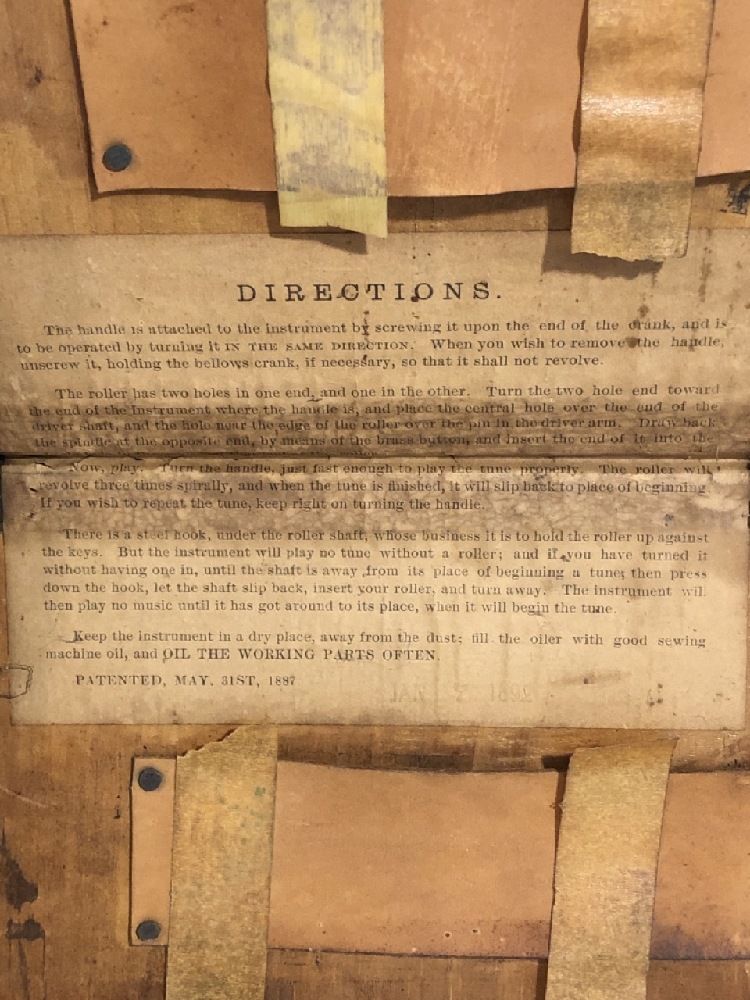 DIRECTIONS.
The handle is attached to the instrument by screwing it upon the end of the crank, and is
to be operated by turning it IN THE SAME DIRECTION. When you wish to remove the handle,
unscrew it, holding the bellows crank, if necessary, so that it shall not revolve.
The roller has two holes in one end, and one in the other. Turn the two hole end toward
the end of the instrument where the handle is, and place the central hole over the end of the
driver shaft, and the hole near the edge of the roller over the pin in the driver arm. Draw back
the spindle at the opposite end, by means of the brass button, and insert the end of it into the
Now, play. Turn the handle, just fast enough to play the tune properly. The roller will
revolve three times spirally, and when the tune is finished, it will slip back to place of beginning.
If you wish to repeat the tune, keep right on turning the handle.
There is a steel hook, under the roller shaft, whose business it is to hold the roller up against
the keys. But the instrument will play no tune without a roller; and if you have turned it
without having one in, until the shaft is away from its place of beginning a tune; then press
down the hook, let the shaft slip back, insert your roller, and turn away. The instrument will
then play no music until it has got around to its place, when it will begin the tune.
Keep the instrument in a dry place, away from the dust; fill the oiler with good sewing
machine oil, and OIL THE WORKING PARTS OFTEN.
PATENTED, MAY, 31ST, 1887